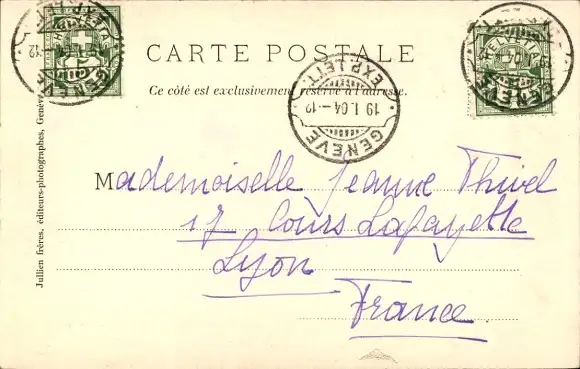 CARTE POSTALE
Ce côté est exclusivement réservé à l'adresse.
GENÈVE
EXP. LETT.
19 I.04 –12
HELVETIA
Mademoiselle Jeanne Thivel
17 Cours Lafayette
Lyon
France
Jullien frères, éditeurs-photographes, Genève